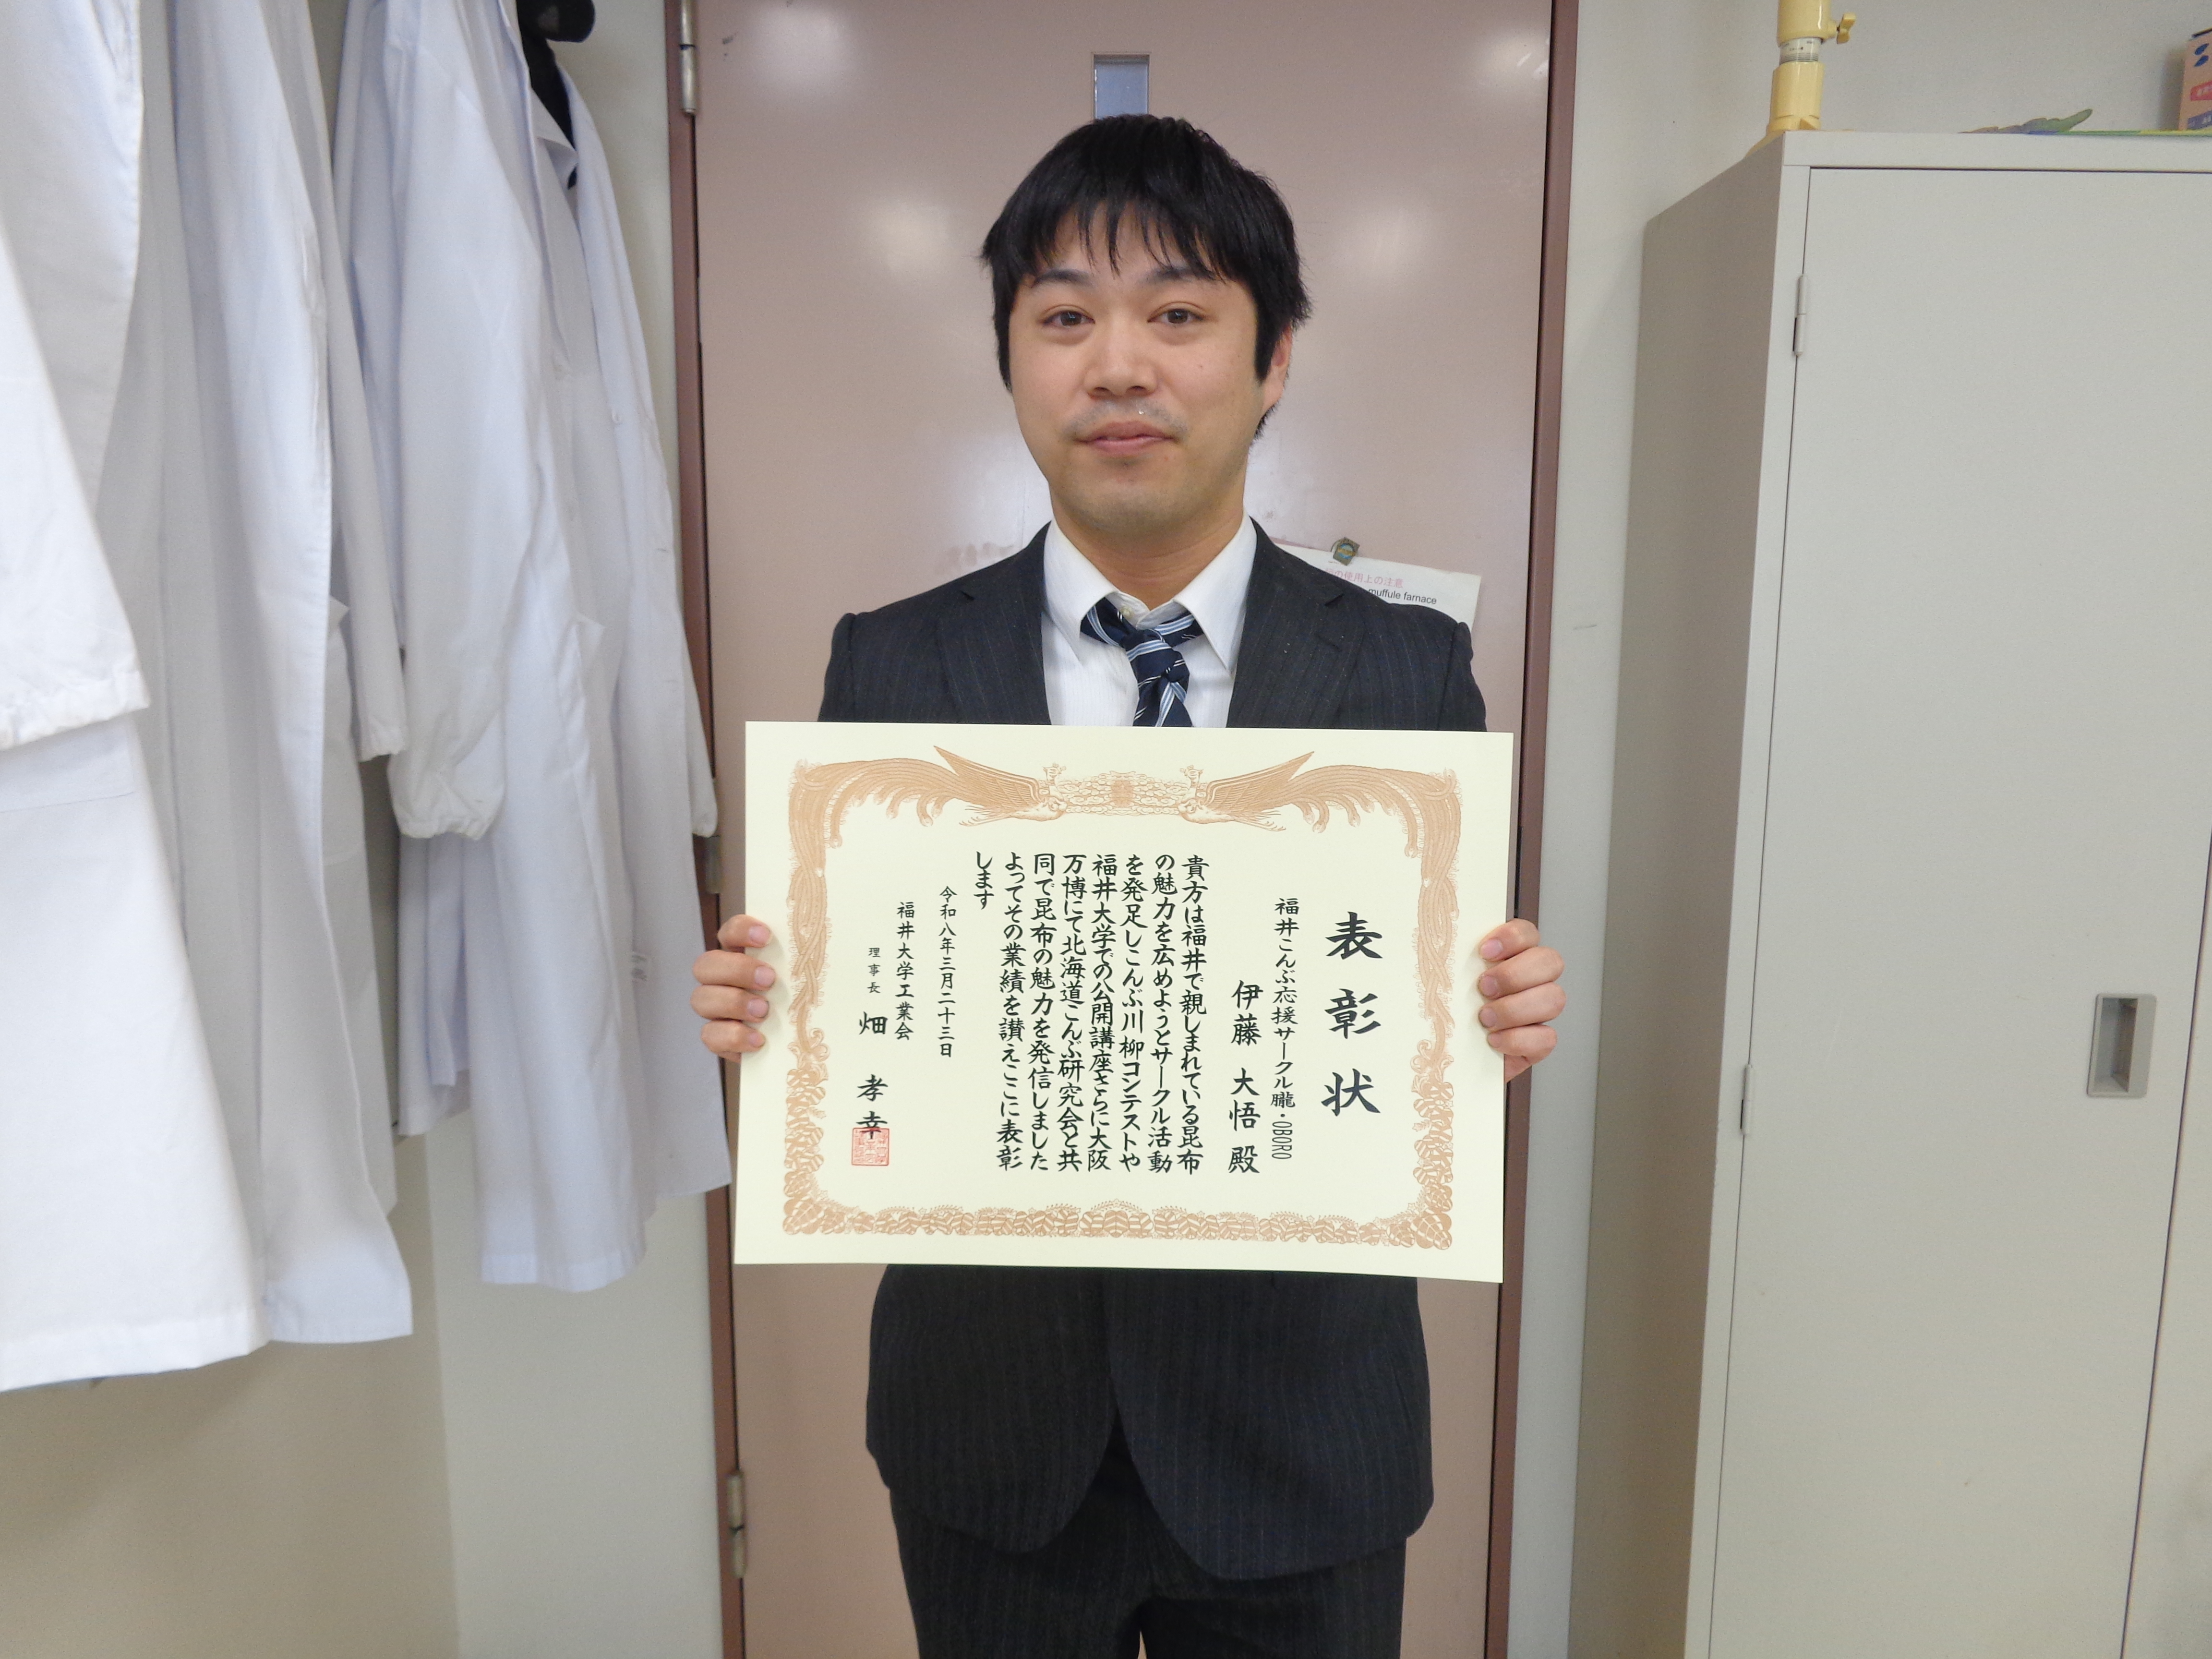 表彰状
福井こんぶ応援サークル朧・OBORO
伊藤 大悟 殿
貴方は福井で親しまれている昆布
の魅力を広めようとサークル活動
を発足しこんぶ川柳コンテストや
福井大学での公開講座さらに大阪
万博にて北海道こんぶ研究会と共
同で昆布の魅力を発信しました
よってその業績を讃えここに表彰
します
令和八年三月二十三日
福井大学工業会
理事長 畑 孝幸
の使用上の注意
muffule farnace